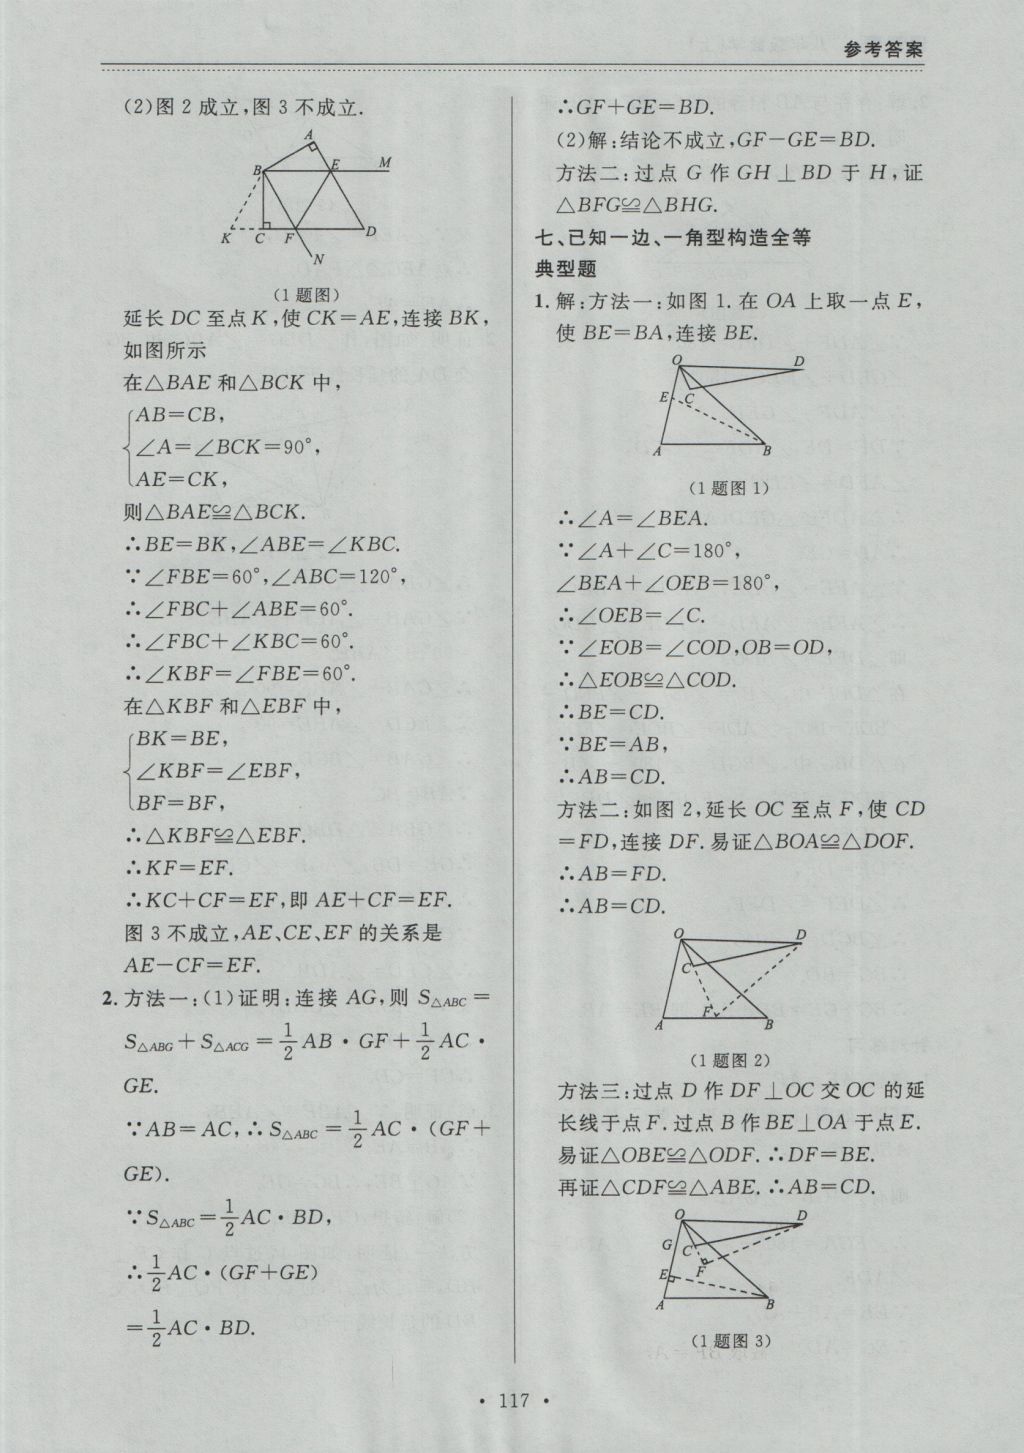 参考答案
(2)图 2 成立,图 3 不成立.
A
B
E
M
K
C
F
D
N
(1题图)
延长 DC 至点 K,使 CK=AE,连接 BK,
如图所示
在△BAE 和△BCK 中,
AB=CB,
∠A=∠BCK=90°,
AE=CK,
则△BAE≌△BCK.
∴BE=BK,∠ABE=∠KBC.
∵∠FBE=60°,∠ABC=120°,
∴∠FBC+∠ABE=60°.
∴∠FBC+∠KBC=60°.
∴∠KBF=∠FBE=60°.
在△KBF 和△EBF 中,
BK=BE,
∠KBF=∠EBF,
BF=BF,
∴△KBF≌△EBF.
∴KF=EF.
∴KC+CF=EF,即 AE+CF=EF.
图 3 不成立,AE、CE、EF 的关系是
AE-CF=EF.
2. 方法一:(1)证明:连接 AG,则 S△ABC=
S△ABG+S△ACG=1/2 AB·GF+1/2 AC·
GE.
∵AB=AC,∴S△ABC=1/2 AC·(GF+
GE).
∵S△ABC=1/2 AC·BD,
∴1/2 AC·(GF+GE)
=1/2 AC·BD.
∴GF+GE=BD.
(2)解:结论不成立,GF-GE=BD.
方法二:过点 G 作 GH⊥BD 于 H,证
△BFG≌△BHG.
七、已知一边、一角型构造全等
典型题
1. 解:方法一:如图 1. 在 OA 上取一点 E,
使 BE=BA,连接 BE.
O
D
E
C
A
B
(1题图1)
∴∠A=∠BEA.
∵∠A+∠C=180°,
∠BEA+∠OEB=180°,
∴∠OEB=∠C.
∵∠EOB=∠COD,OB=OD,
∴△EOB≌△COD.
∴BE=CD.
∵BE=AB,
∴AB=CD.
方法二:如图 2,延长 OC 至点 F,使 CD
=FD,连接 DF. 易证△BOA≌△DOF.
∴AB=FD.
∴AB=CD.
O
D
C
F
A
B
(1题图2)
方法三:过点 D 作 DF⊥OC 交 OC 的延
长线于点 F. 过点 B 作 BE⊥OA 于点 E.
易证△OBE≌△ODF. ∴DF=BE.
再证△CDF≌△ABE. ∴AB=CD.
O
D
G
C
F
E
A
B
(1题图3)
· 117 ·